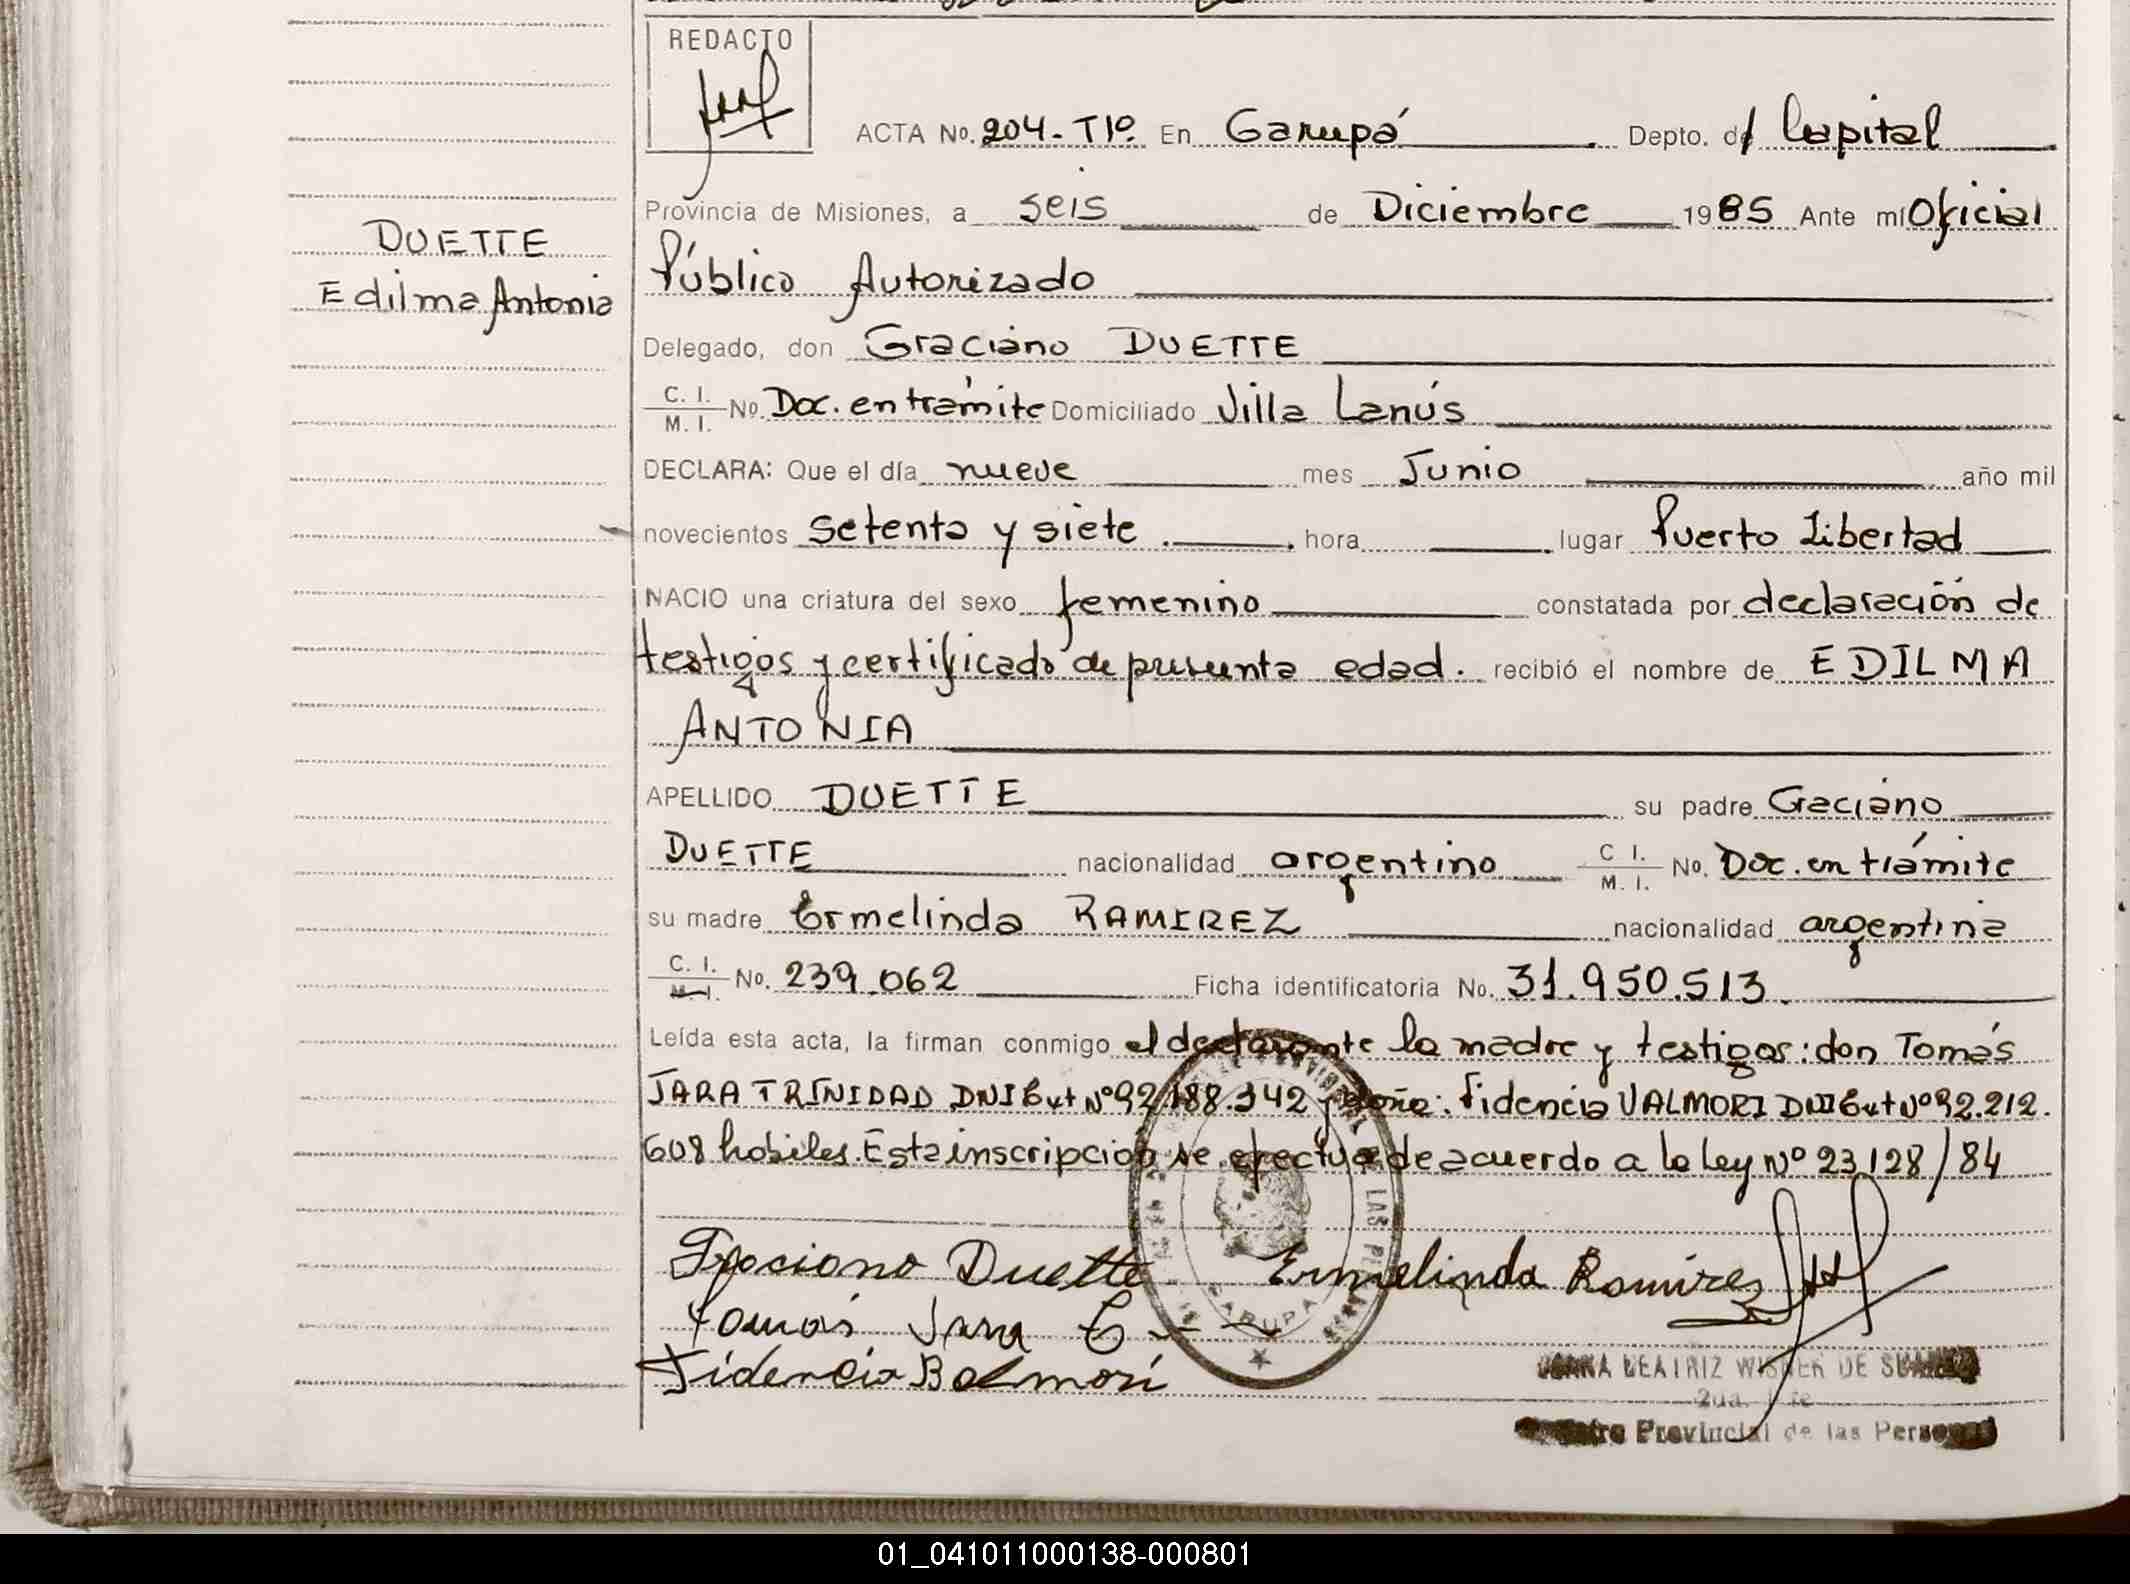 REDACTO
ACTA No. 204-T1º. En Garupá Depto. de Capital
Provincia de Misiones, a seis de Diciembre 1985 Ante mí Oficial
DUETTE
Público Autorizado
Edilma Antonia
Delegado, don Graciano DUETTE
C. I. M. I. No. Doc. en trámite Domiciliado Villa Lanús
DECLARA: Que el día nueve mes Junio año mil
novecientos setenta y siete hora lugar Puerto Libertad
NACIO una criatura del sexo femenino constatada por declaración de
testigos y certificado de presunta edad. recibió el nombre de EDILMA
ANTONIA
APELLIDO DUETTE su padre Graciano
DUETTE nacionalidad argentino C I. M. I. No. Doc. en trámite
su madre Ermelinda RAMIREZ nacionalidad argentina
C. I. M. I. No. 239.062 Ficha identificatoria No. 31.950.513.
Leída esta acta, la firman conmigo el declarante la madre y testigos: don Tomás
JARA TRINIDAD DNI Ext Nº 92.188.342 y doña: Fidencia VALMORI DNI Ext Nº 92.212.
608 hábiles. Esta inscripción se efectua de acuerdo a la ley Nº 23.128/84
Graciano Duette Ermelinda Ramirez
Tomás Jara
Fidencia Balmori
GARUPA
BEATRIZ WISNER DE
Provincial de las
01_041011000138-000801